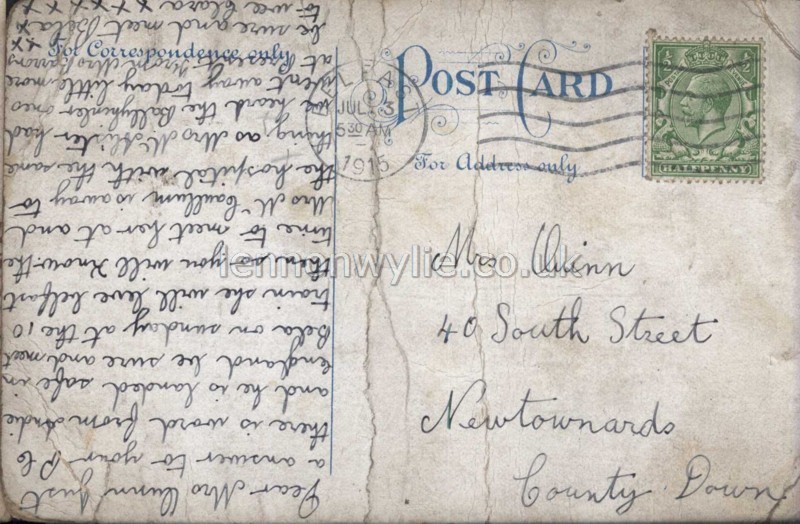 For Correspondence only
POST CARD
For Address only
BELFAST
JUL 3
5 30 AM
1915
½ ½
HALFPENNY
Mrs Quinn
40 South Street
Newtownards
County Down
Dear Mrs Quinn Just
a answer to your P C
there is word from
and he is landed safe in
england be sure and meet
Bela on sunday at the 10
train she will leve belfast
then so you will know the
time to meet her at and
Mrs Mc Caullum is away to
the hospital with the same
thing as Mrs had
we heard the Ballykinler ones
went away to day little more
at Present from Mrs
be sure and meet Bela x x x
to wee Clara x x x x
lennonwylie.co.uk